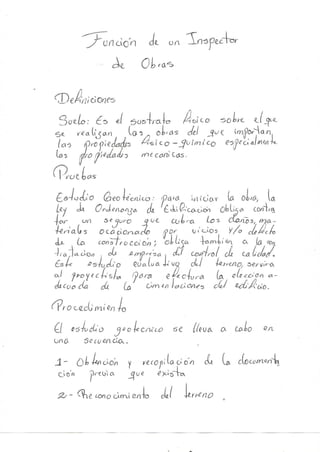 Función de un Inspector
de Obras
Definiciones
Suelo: Es el sustrato físico sobre el que
se realizan las obras del que importan
las propiedades físico-químico especialmente
las propiedades mecánicas.
Pruebas
Estudio Geotécnico: para iniciar la obra, la
ley de Ordenanza de Edificación obliga contra
tar un seguro que cubra los daños, ma-
teriales ocacionado por vicios y/o defecto
de la construcción; obliga también a la
de empresa del control de calidad.
Este estudio evalua del terreno, servira
al proyectista para efectura la elección a-
decuada de la cimentaciones del edificio.
Procedimiento
El estudio geotecnico se lleva a cabo en
una secuencia.
1- Obtención y recopilación de la documenta
ción previa que exista
2- Reconocimiento del terreno.